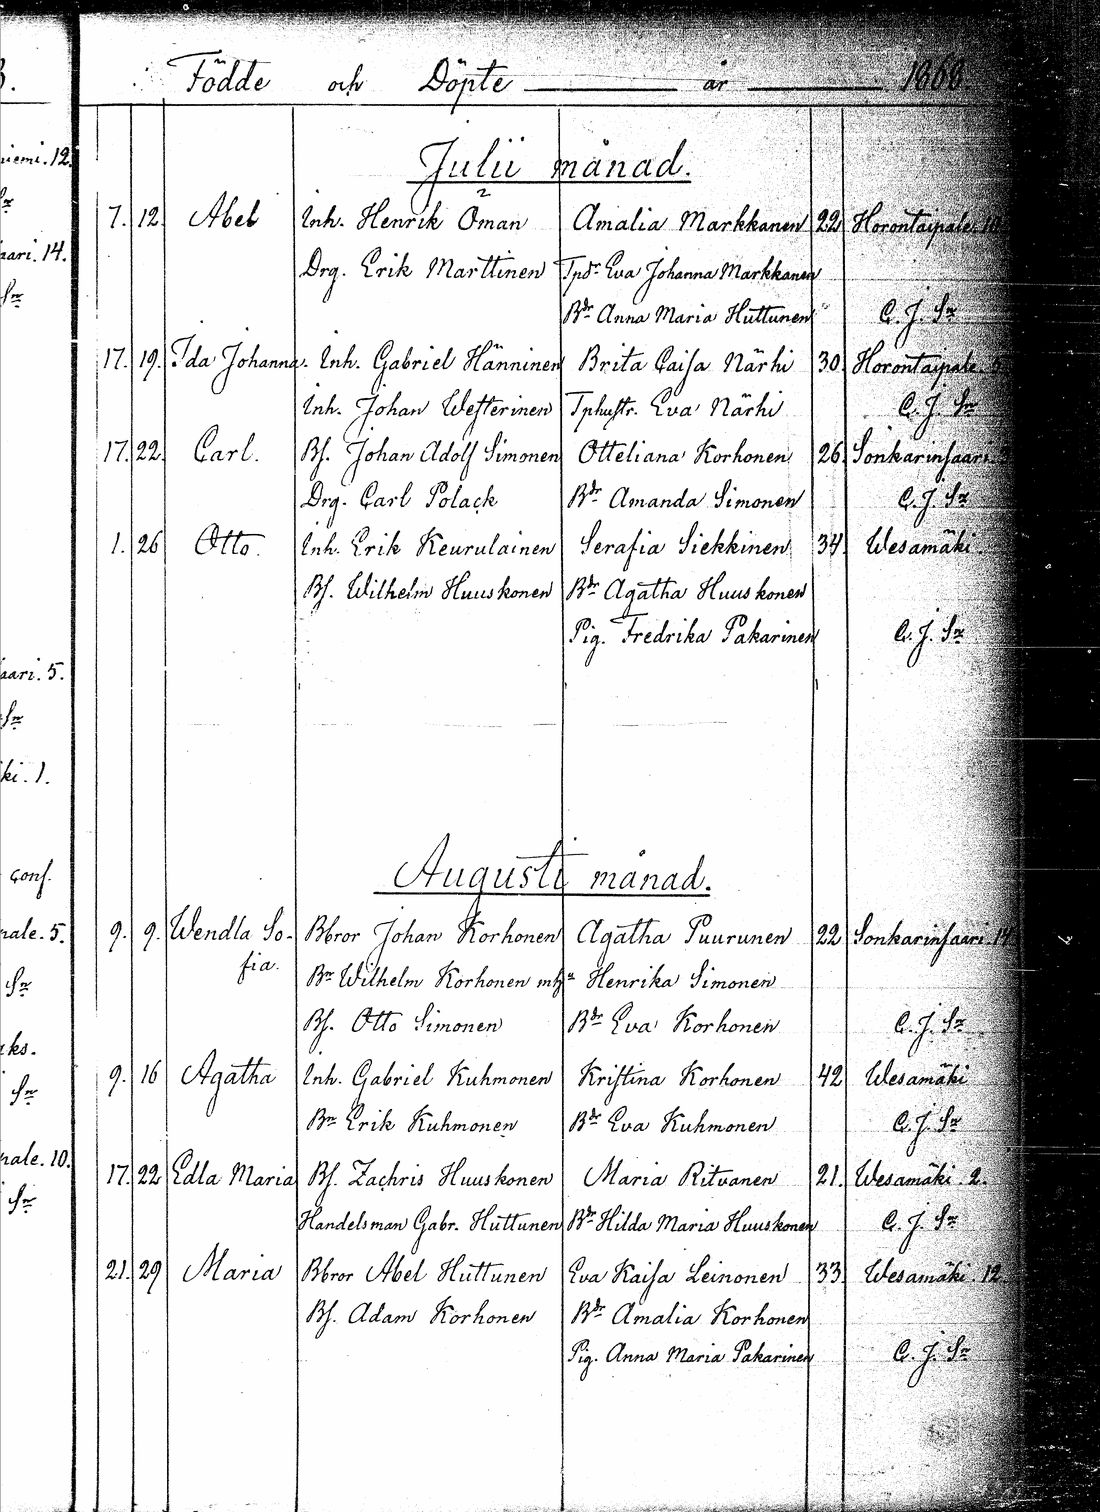 Födde och Döpte år 1868.
Julii månad.
7. 12. Abel Inh. Henrik Öman Amalia Markkanen 22 Horontaipale.
Drg. Erik Marttinen Tpdr Eva Johanna Markkanen
Bdr Anna Maria Huttunen C. J. Sn
17. 19. Ida Johanna. Inh. Gabriel Hänninen Brita Caisa Närhi 30 Horontaipale.
Inh. Johan Westerinen Tphustr. Eva Närhi C. J. Sn
17. 22. Carl. Bs. Johan Adolf Simonen Otteliana Korhonen 26. Sonkarinsaari
Drg. Carl Polack Bdr Amanda Simonen C. J. Sn
1. 26 Otto. Inh. Erik Keurulainen Serafia Siekkinen 34. Wesamäki.
Bs. Wilhelm Huuskonen Bdr Agatha Huuskonen
Pig. Fredrika Pakarinen C. J. Sn
Augusti månad.
9. 9. Wendla So- Bbror Johan Korhonen Agatha Puurunen 22 Sonkarinsaari. 14
fia. Bn Wilhelm Korhonen m h a Henrika Simonen
Bs. Otto Simonen Bdr Eva Korhonen C. J. Sn
9. 16 Agatha Inh. Gabriel Kuhmonen Kristina Korhonen 42 Wesamäki
Bn Erik Kuhmonen Bdr Eva Kuhmonen C. J. Sn
17. 22 Edla Maria Bs. Zachris Huuskonen Maria Ritvanen 21. Wesamäki. 2.
Handelsman Gabr. Huttunen Bdr Hilda Maria Huuskonen C. J. Sn
21. 29 Maria Bbror Abel Huttunen Eva Kaisa Leinonen 33. Wesamäki. 12
Bs. Adam Korhonen Bdr Amalia Korhonen
Pig. Anna Maria Pakarinen C. J. Sn